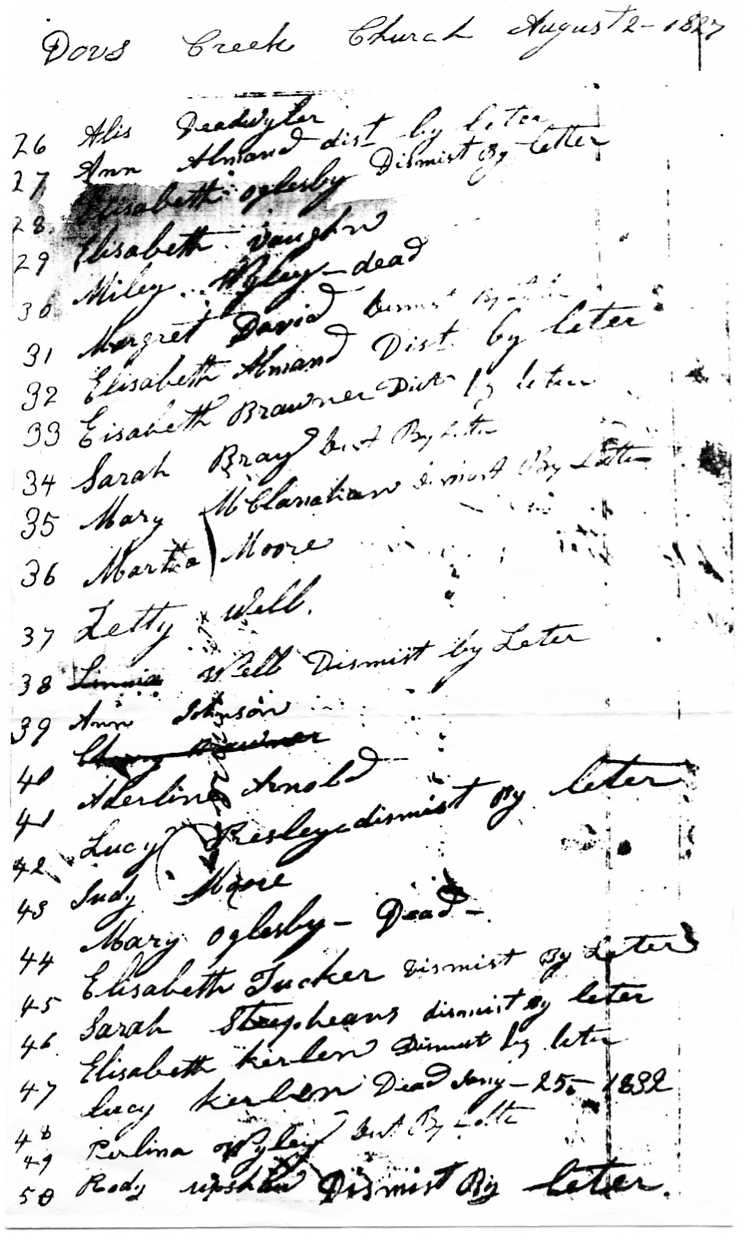 Dovs Creek Church August 2-1827
26 Alis Deadwyler
27 Ann Almand dist by leter
28. Elisabeth Oglesby Dismist By letter
29 Elisabeth Vaughn
30 Miley Wyley - dead
31 Margret David Dismist By
32 Elisabeth Almand Dist. by leter
33 Eisabeth Brawner Dist by leter
34 Sarah Bray Dist By Leter
35 Mary McClanahan dismist By Leter
36 Martha Moore
37 Letty Webb.
38 Linnia Webb Dismist by Leter
39 Ann Johnson
40 Brawner
41 Aderline Arnold
42 Lucy Presley dismist By leter
43 Judy Moore
44 Mary Oglesby - Dead -
45 Elisabeth Tucker Dismist By Leter
46 Sarah Stepheans dismist by leter
47 Elisabeth Kerlen Dismist by leter
48 Lucy Kerlen Dead Jany - 25 - 1832
49 Perlina Wyley Dist By
50 Rody upshaw Dismist By leter.